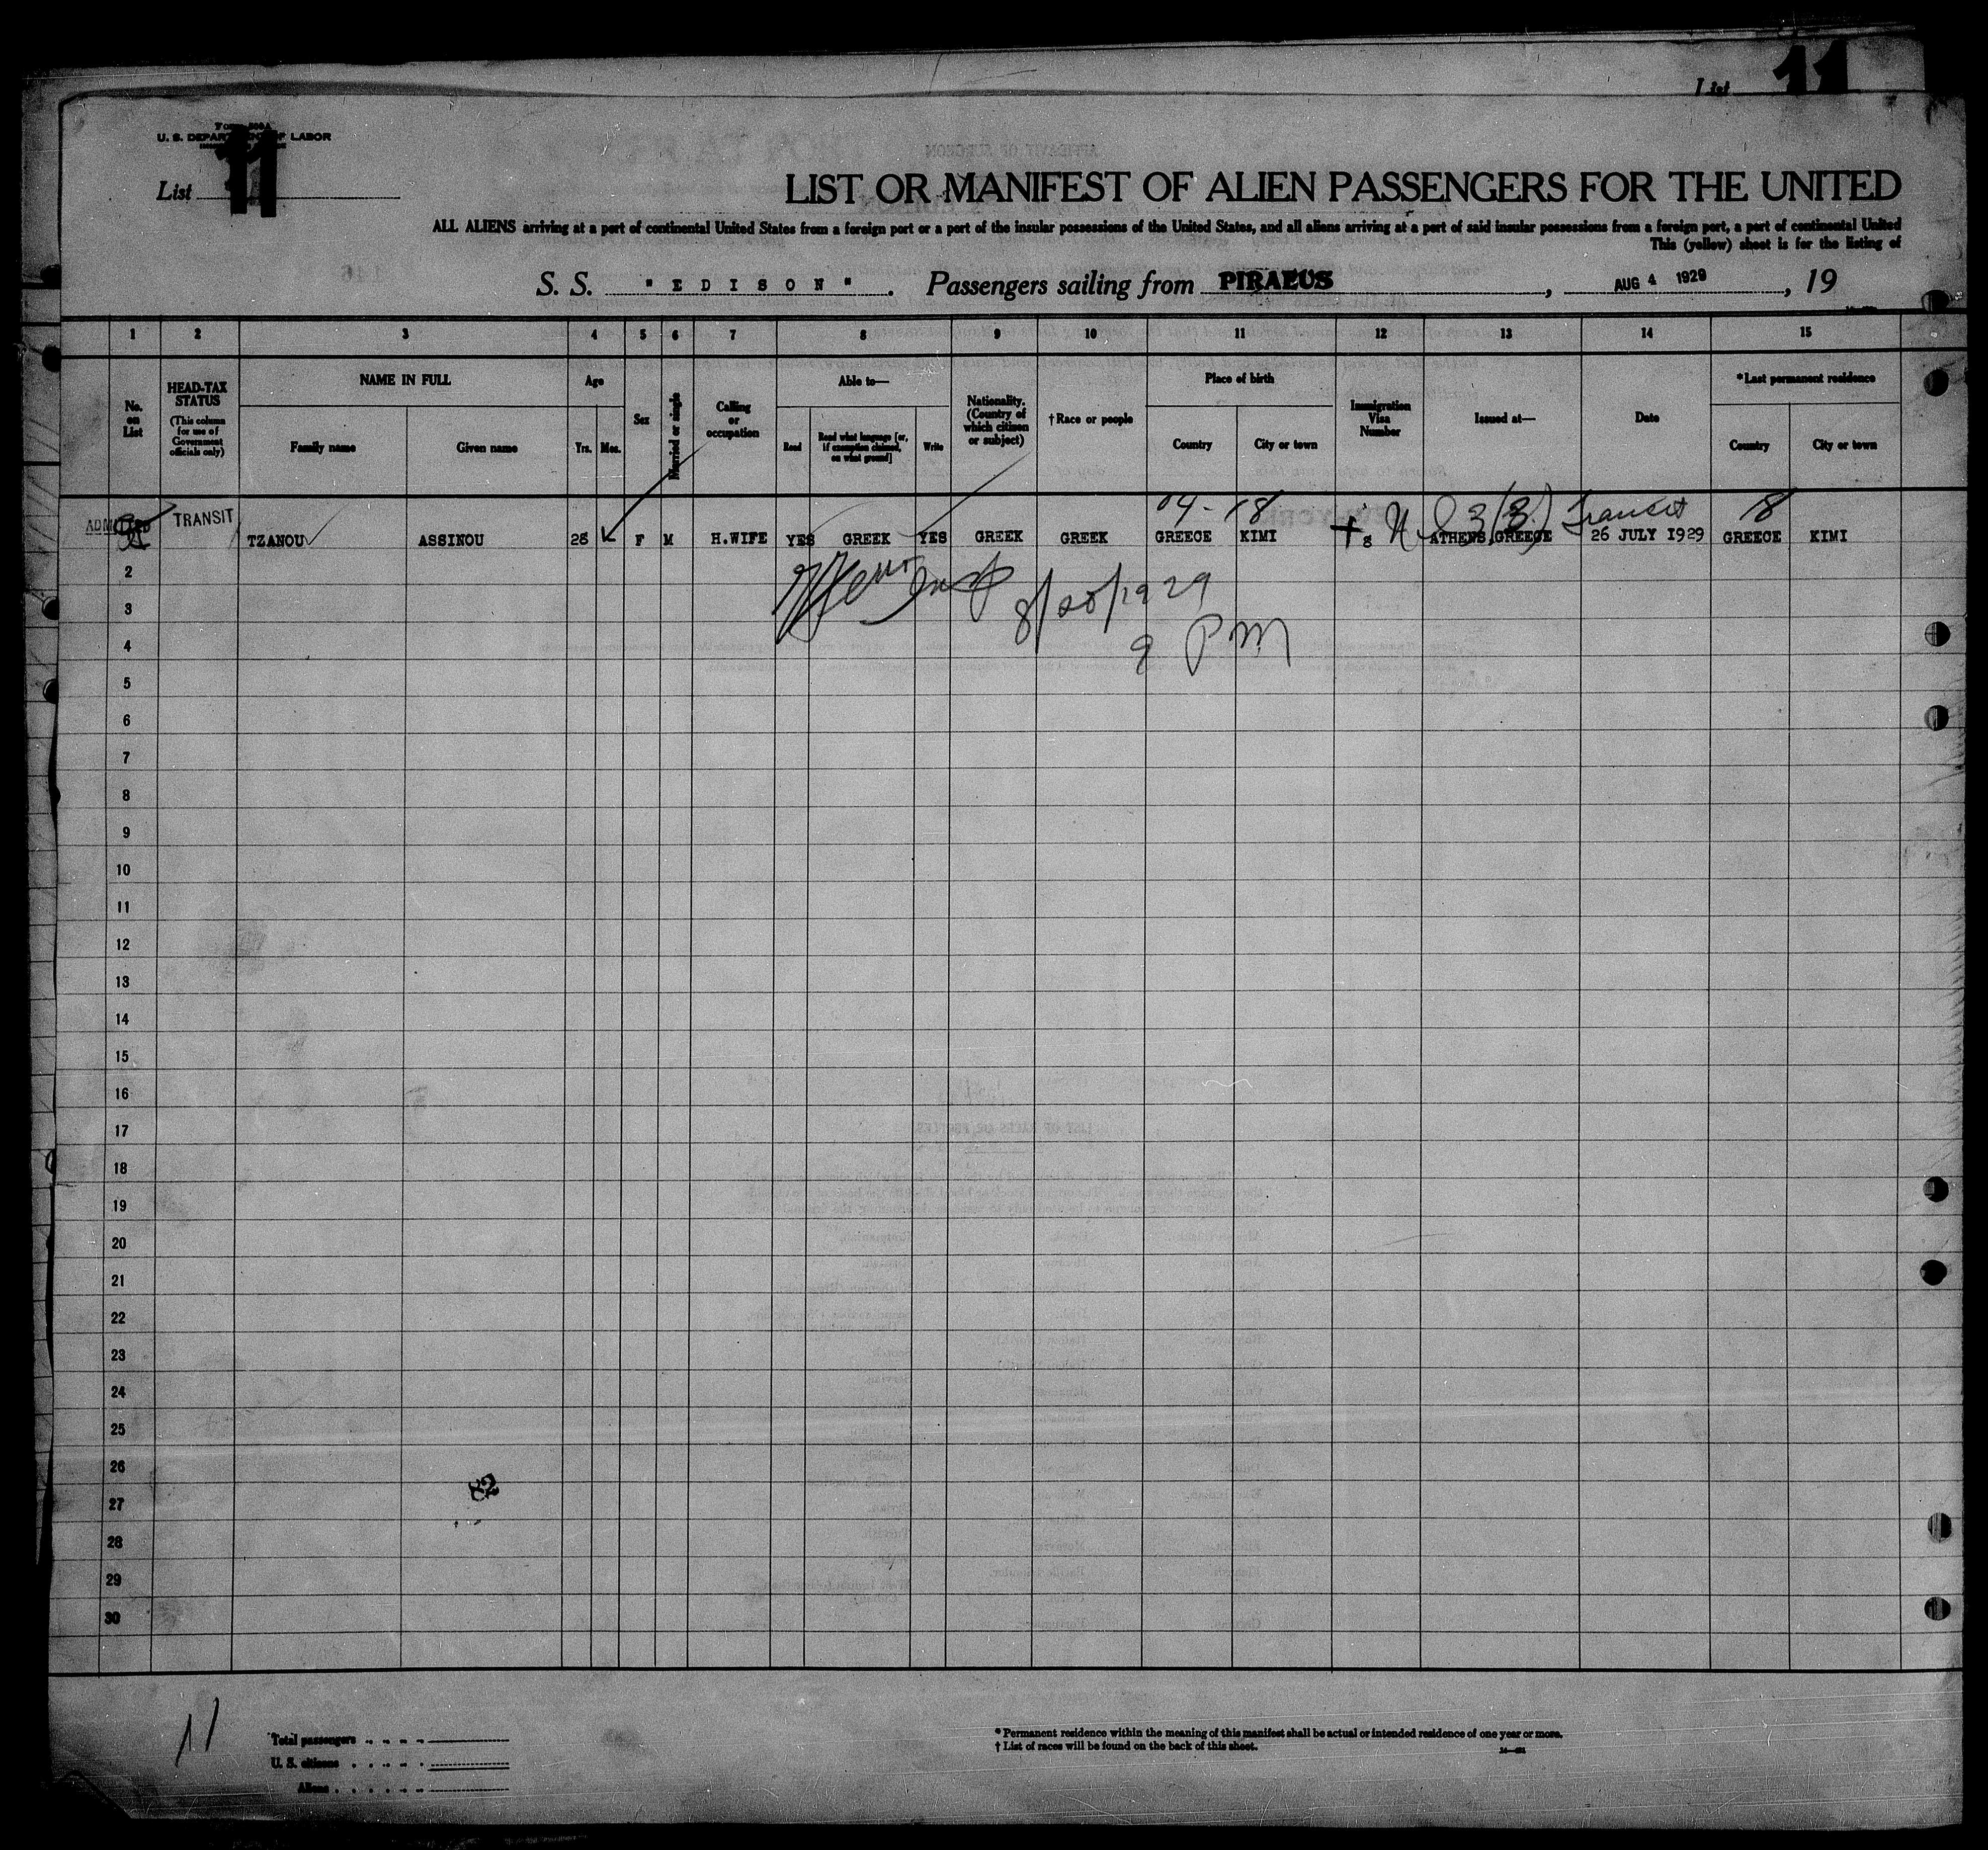 List 11
Form 500A
U. S. DEPARTMENT OF LABOR
List 11
LIST OR MANIFEST OF ALIEN PASSENGERS FOR THE UNITED
ALL ALIENS arriving at a port of continental United States from a foreign port or a port of the insular possessions of the United States, and all aliens arriving at a port of said insular possessions from a foreign port, a port of continental United
This (yellow) sheet is for the listing of
S. S. "EDISON". Passengers sailing from PIRAEUS, AUG 4 1929, 19
1 2 3 4 5 6 7 8 9 10 11 12 13 14 15
No. on List
HEAD-TAX STATUS
(This column for use of Government officials only)
NAME IN FULL
Family name
Given name
Age
Yrs. Mos.
Sex
Married or single
Calling or occupation
Able to—
Read
Read what language [or, if exemption claimed, on what ground]
Write
Nationality. (Country of which citizen or subject)
†Race or people
Place of birth
Country
City or town
Immigration Visa Number
Issued at—
Date
*Last permanent residence
Country
City or town
04-18 3(3) Transit 8
ADMITTED TRANSIT TZANOU ASSINOU 28 F M H.WIFE YES GREEK YES GREEK GREEK GREECE KIMI ATHENS,GREECE 26 JULY 1929 GREECE KIMI
2
8/20/1929
3
9 PM
4
5
6
7
8
9
10
11
12
13
14
15
16
17
18
19
20
21
22
23
24
25
26
82
27
28
29
30
11
Total passengers
U. S. citizens
Aliens
* Permanent residence within the meaning of this manifest shall be actual or intended residence of one year or more.
† List of races will be found on the back of this sheet.